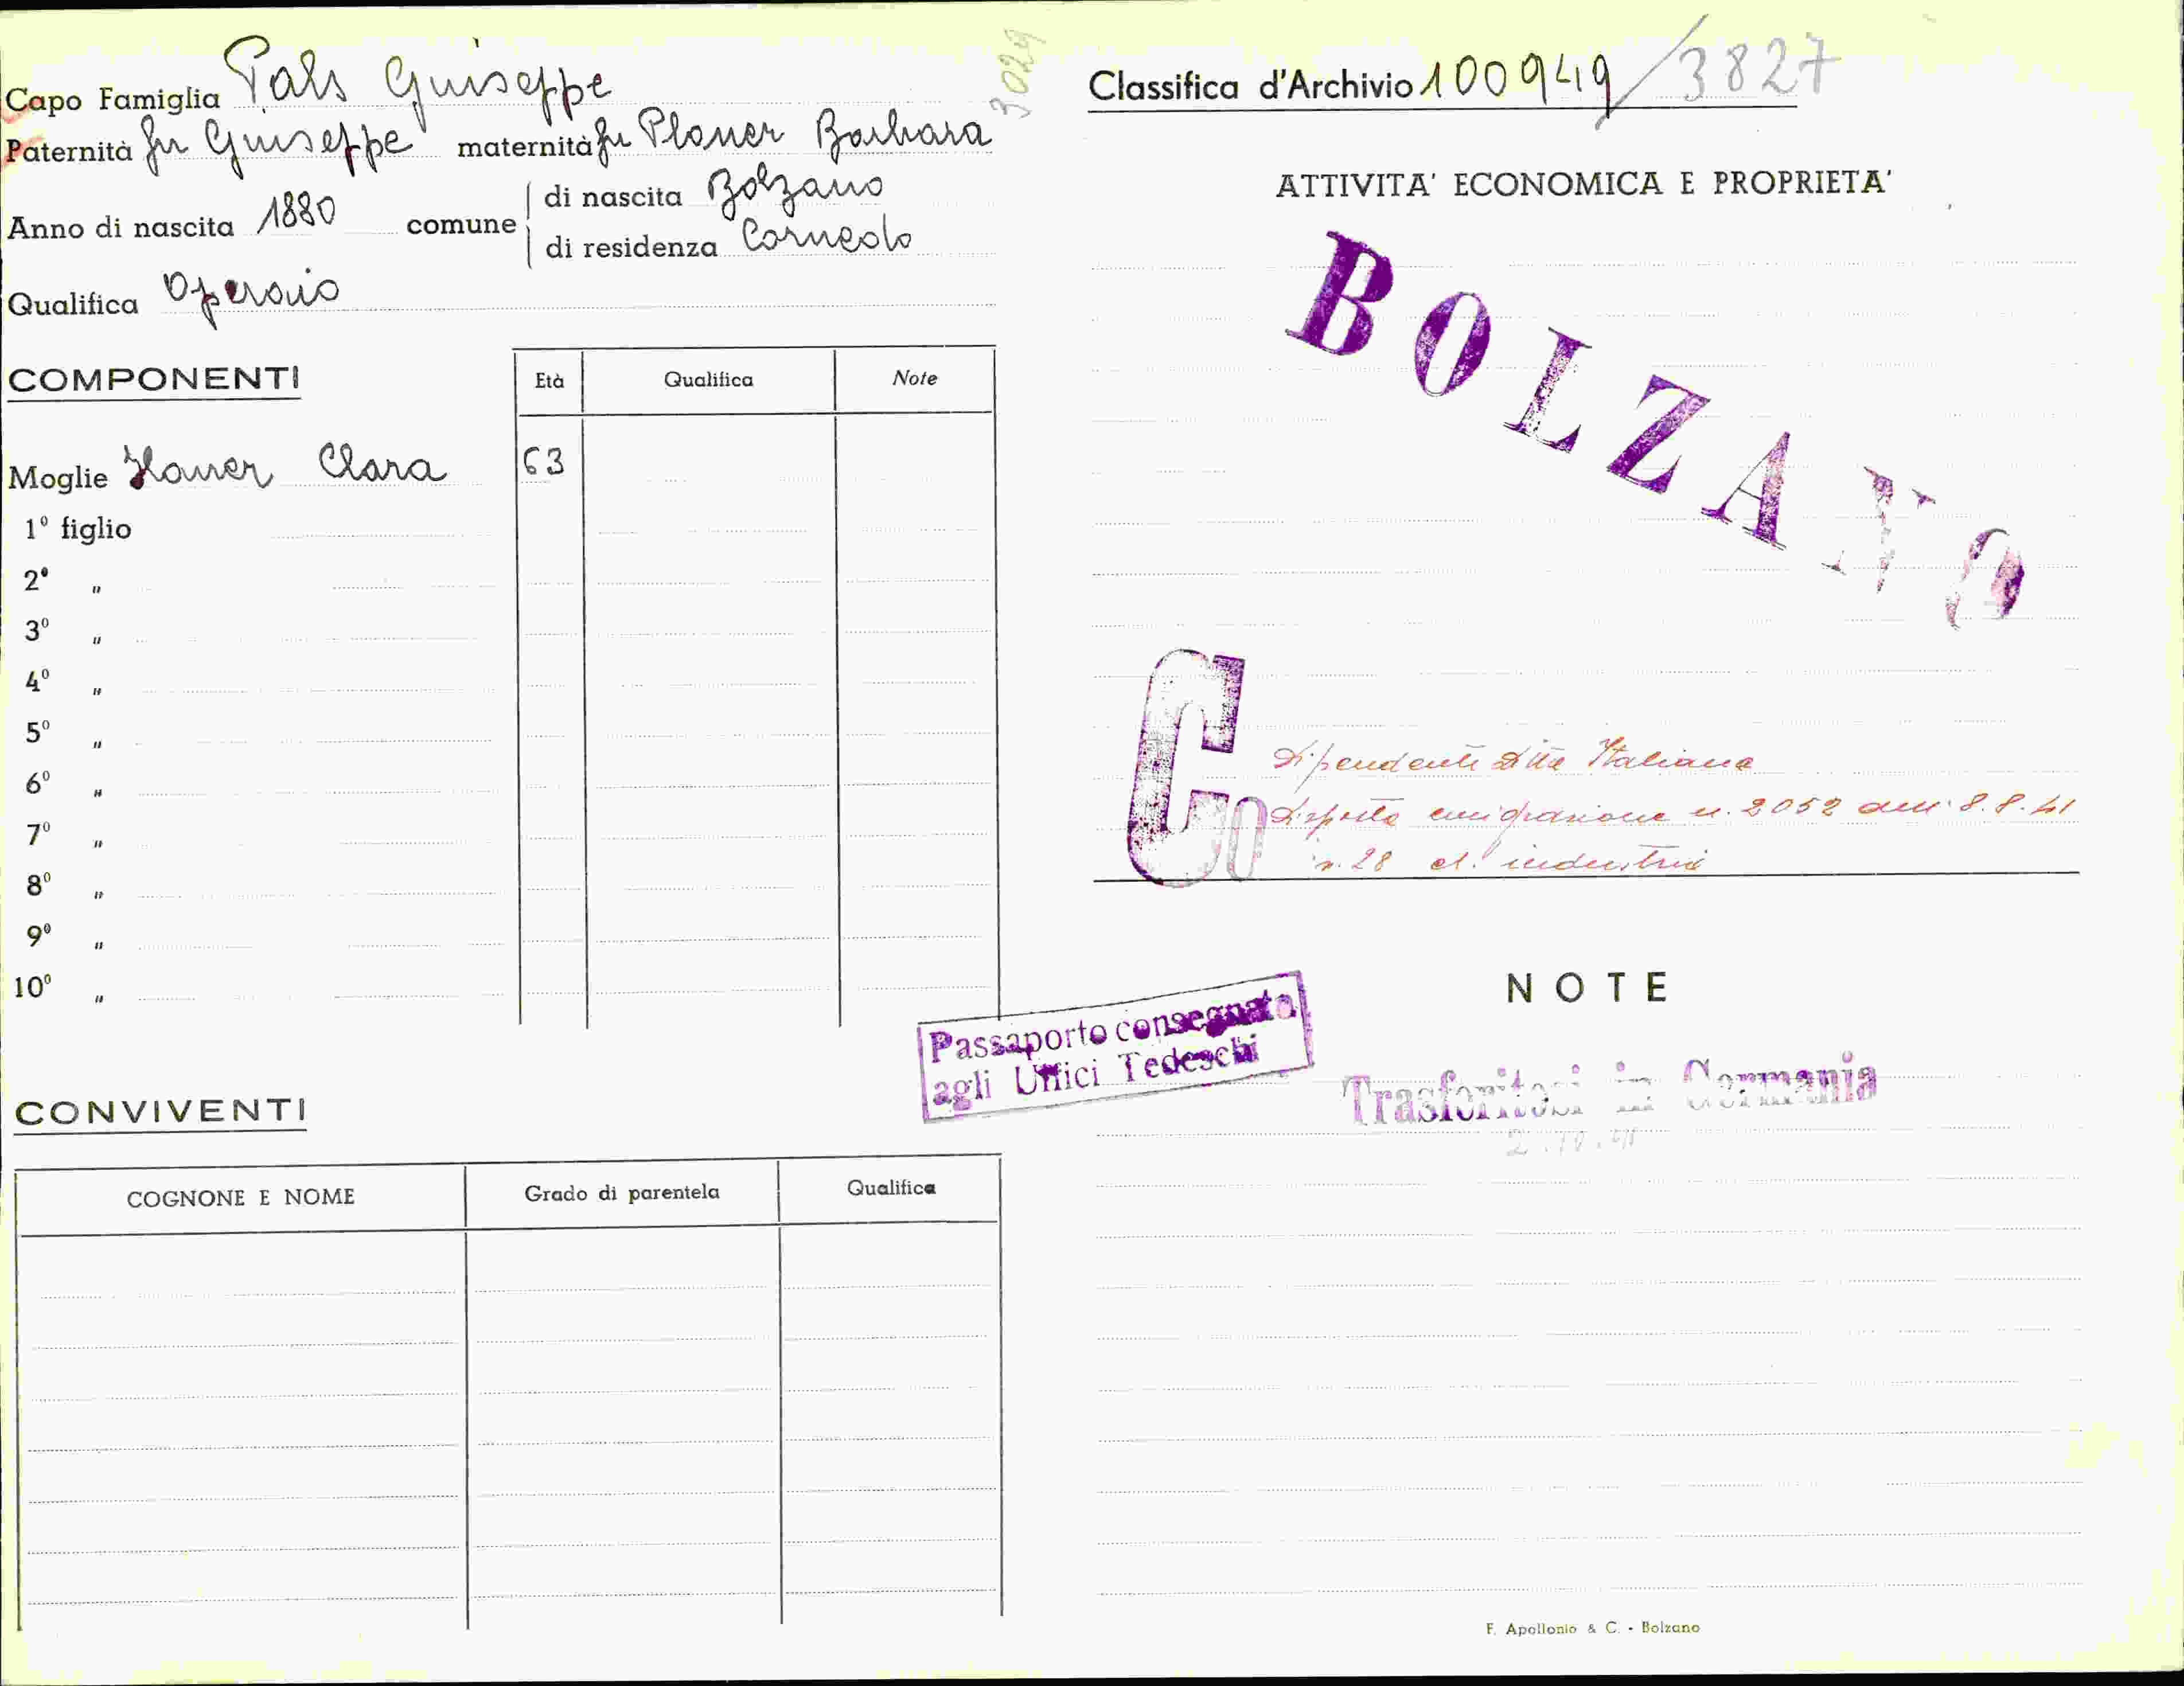 Capo Famiglia Pals Giuseppe
Paternità fu Giuseppe maternità fu Ploner Barbara
Anno di nascita 1880 comune di nascita Bolzano
di residenza Corneolo
Qualifica Operaio
3029
COMPONENTI
Età Qualifica Note
Moglie Clara 63
1º figlio
2º "
3º "
4º "
5º "
6º "
7º "
8º "
9º "
10º "
Passaporto consegnato
agli Uffici Tedeschi
CONVIVENTI
COGNONE E NOME Grado di parentela Qualifica
Classifica d'Archivio 100949/3827
ATTIVITA' ECONOMICA E PROPRIETA'
BOLZANO
Co
Dipendente Ditta Italiana
emigrazione n. 2052 8.8.41
n. 28 el. industria
NOTE
Trasferitosi in Germania
2.10.41
F. Apollonio & C. - Bolzano